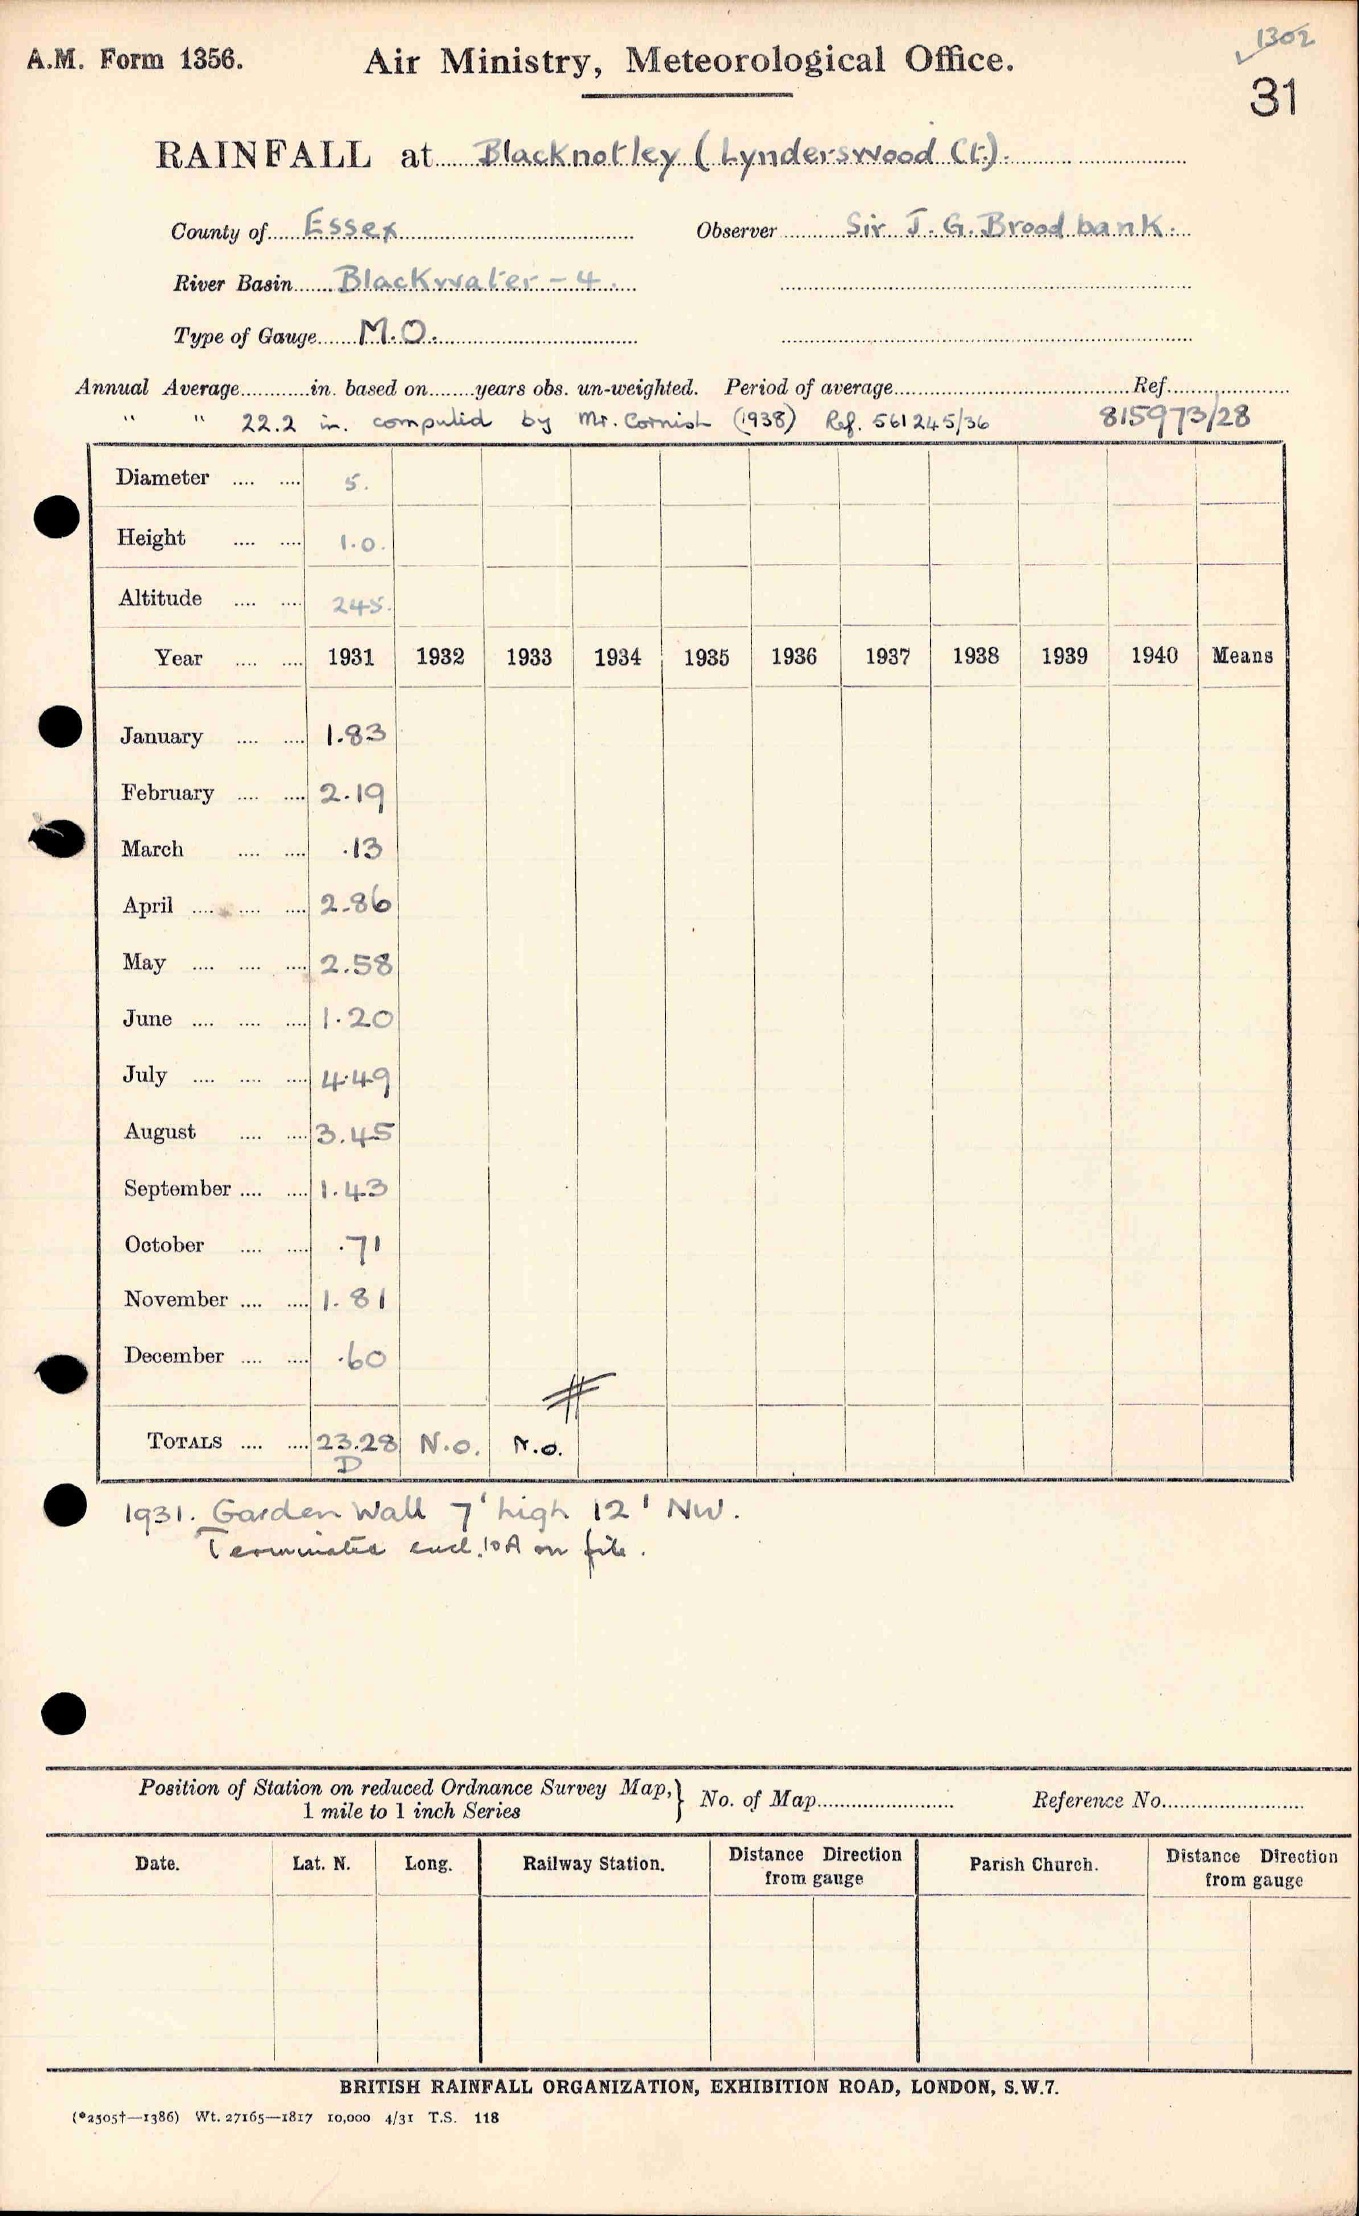 1302
A.M. Form 1356. Air Ministry, Meteorological Office.
31
RAINFALL at Blacknotley (Lynderswood Ct.).
County of Essex Observer Sir J. G. Broodbank.
River Basin Blackwater - 4.
Type of Gauge M.O.
Annual Average............in. based on........years obs. un-weighted. Period of average........Ref........
" " 22.2 in. computed by Mr. Cornish (1938) Ref. 561245/36 815973/28
Diameter .... .... 5.
Height .... .... 1.0.
Altitude .... .... 245.
Year .... .... 1931 1932 1933 1934 1935 1936 1937 1938 1939 1940 Means
January .... .... 1.83
February .... .... 2.19
March .... .... .13
April .... .... .... 2.86
May .... .... .... 2.58
June .... .... .... 1.20
July .... .... .... 4.49
August .... .... 3.45
September .... .... 1.43
October .... .... .71
November .... .... 1.81
December .... .... .60
TOTALS .... .... 23.28 N.o. N.o.
D
1931. Garden Wall 7' high 12' NW.
Terminated encl. 10A on file.
Position of Station on reduced Ordnance Survey Map,} No. of Map........ Reference No........
1 mile to 1 inch Series
Date. Lat. N. Long. Railway Station. Distance Direction from gauge Parish Church. Distance Direction from gauge
BRITISH RAINFALL ORGANIZATION, EXHIBITION ROAD, LONDON, S.W.7.
(*2505†—1386) Wt. 27165—1817 10,000 4/31 T.S. 118